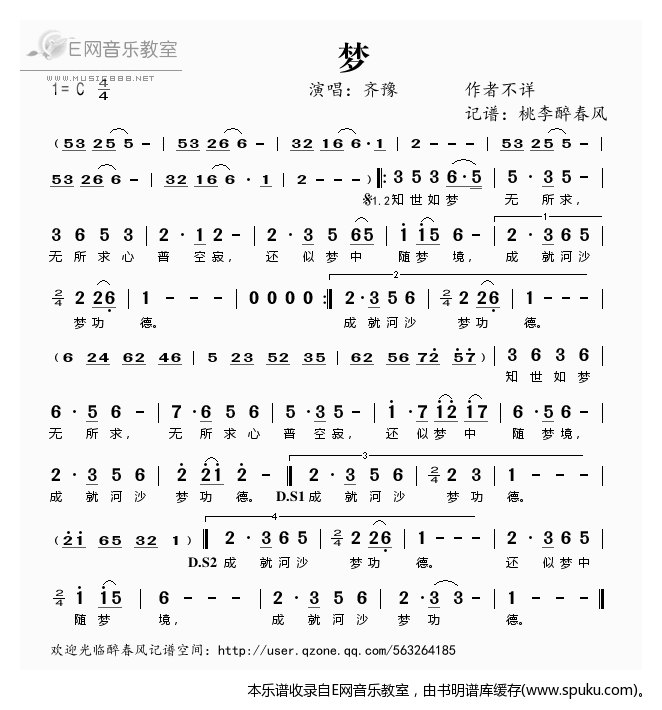 E网音乐教室
WWW.MUSIC888.NET
梦
1= C 4/4 演唱：齐豫 作者不详
记谱：桃李醉春风
( 53 25 5 – | 53 26 6 – | 32 16 6 · 1 | 2 – – – | 53 25 5 –
53 26 6 – | 32 16 6 · 1 | 2 – – – ) ‖: 3 5 3 6 · 5 | 5 · 3 5 –
1.2知世如梦 无所求，
3 6 5 3 | 2 · 1 2 – | 2 · 3 5 65 | i i5 6 – | 2 · 3 6 5
无所求心 普空寂， 还似梦中 随梦境， 成就河沙
2/4 2 26 | 1 – – – | 0 0 0 0 :‖ 2 · 3 5 6 | 2/4 2 26 | 1 – – –
梦功 德。 成就河沙 梦功 德。
( 6 24 62 46 | 5 23 52 35 | 62 56 72 57 ) | 3 6 3 6
知世如梦
6 · 5 6 – | 7 · 6 5 6 | 5 · 3 5 – | i · 7 12 17 | 6 · 5 6 –
无所求， 无所求心 普空寂， 还似梦中 随梦境，
2 · 3 5 6 | 2 2i 2 – ‖ 2 · 3 5 6 | 2/4 2 3 | 1 – – –
成就河沙 梦功德。 D.S1成就河沙 梦功 德。
( 2i 65 32 1 ) ‖ 2 · 3 6 5 | 2/4 2 26 | 1 – – – | 2 · 3 6 5
D.S2 成就河沙 梦功 德。 还似梦中
2/4 i i5 | 6 – – – | 2 · 3 5 6 | 2 · 3 3 – | 1 – – – ‖
随梦 境， 成就河沙 梦功 德。
欢迎光临醉春风记谱空间：http://user.qzone.qq.com/563264185
本乐谱收录自E网音乐教室，由书明谱库缓存(www.spuku.com)。